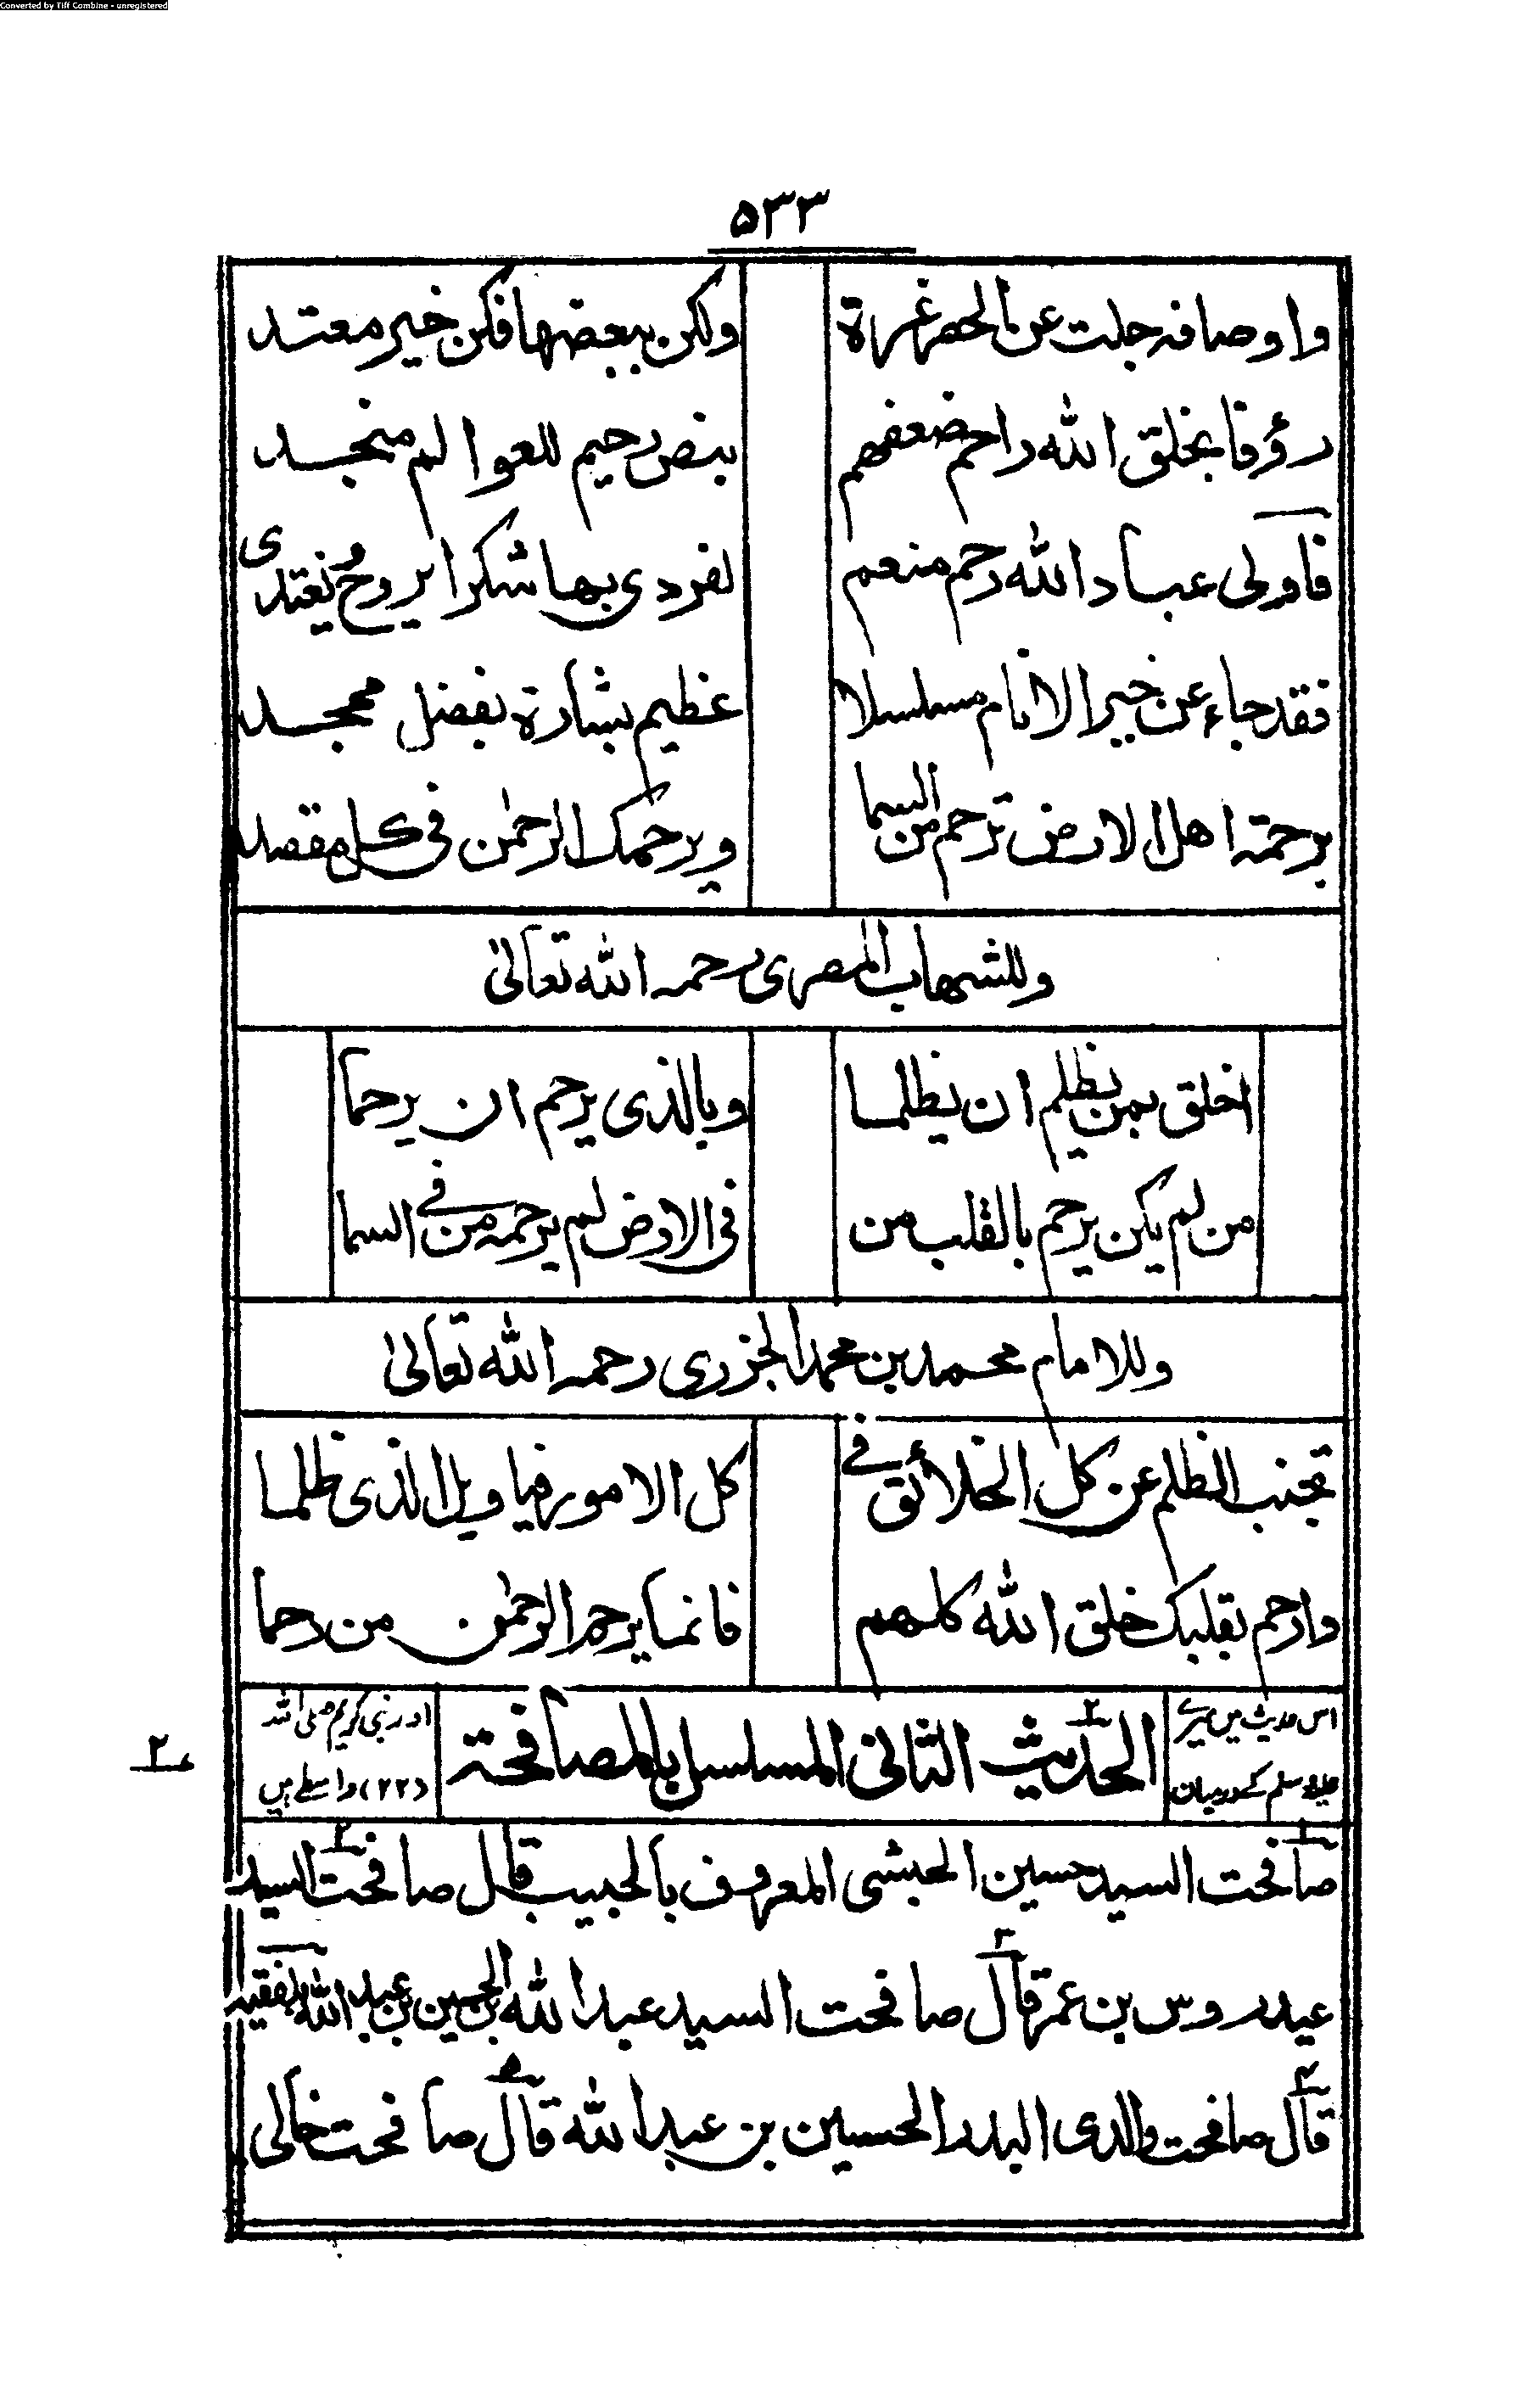 Converted by Tiff Combine - unregistered
۵۳۳
واوصافہ جلت عن الحصر غرة ولكن ببعضها فكن خير معتد
رؤفا بخلق الله راحم ضعفهم بنص رحيم للعوالم منجد
فاولى عباد الله رحم منعم لفردى بها شكرا يروح ويغتدى
فقد جاء عن خير الانام مسلسلا عظيم بشارة بفضل ممجد
برحمة اهل الارض ترحم من السما ويرحمك الرحمٰن فى كل مقصد
وللشهاب المصرى رحمه الله تعالىٰ
اخلق بمن يظلم ان يظلما وبالذى يرحم ان يرحما
من لم يكن يرحم بالقلب من فى الارض لم يرحمه من فى السما
وللامام محمد بن محمد الجزرى رحمه الله تعالىٰ
تجنب الظلم عن كل الخلائق فى كل الامور فيا ويل الذى ظلما
وارحم بقلبك خلق الله كلهم فانما يرحم الرحمٰن من رحما
اس حدیث میں میرے اور نبی کریم صلی اللہ
الحديث الثانى المسلسل بالمصافحة
۲
علیہ وسلم کے درمیان (۲۲) واسطے ہیں
۲
صافحت السيد حسين الحبشى المعروف بالحبيب قال صافحت السيد
عيدروس بن عمر قال صافحت السيد عبد الله بن الحسين بن عبد الله بلفقيه
قال صافحت والدى البدر الحسين بن عبد الله قال صافحت خالى